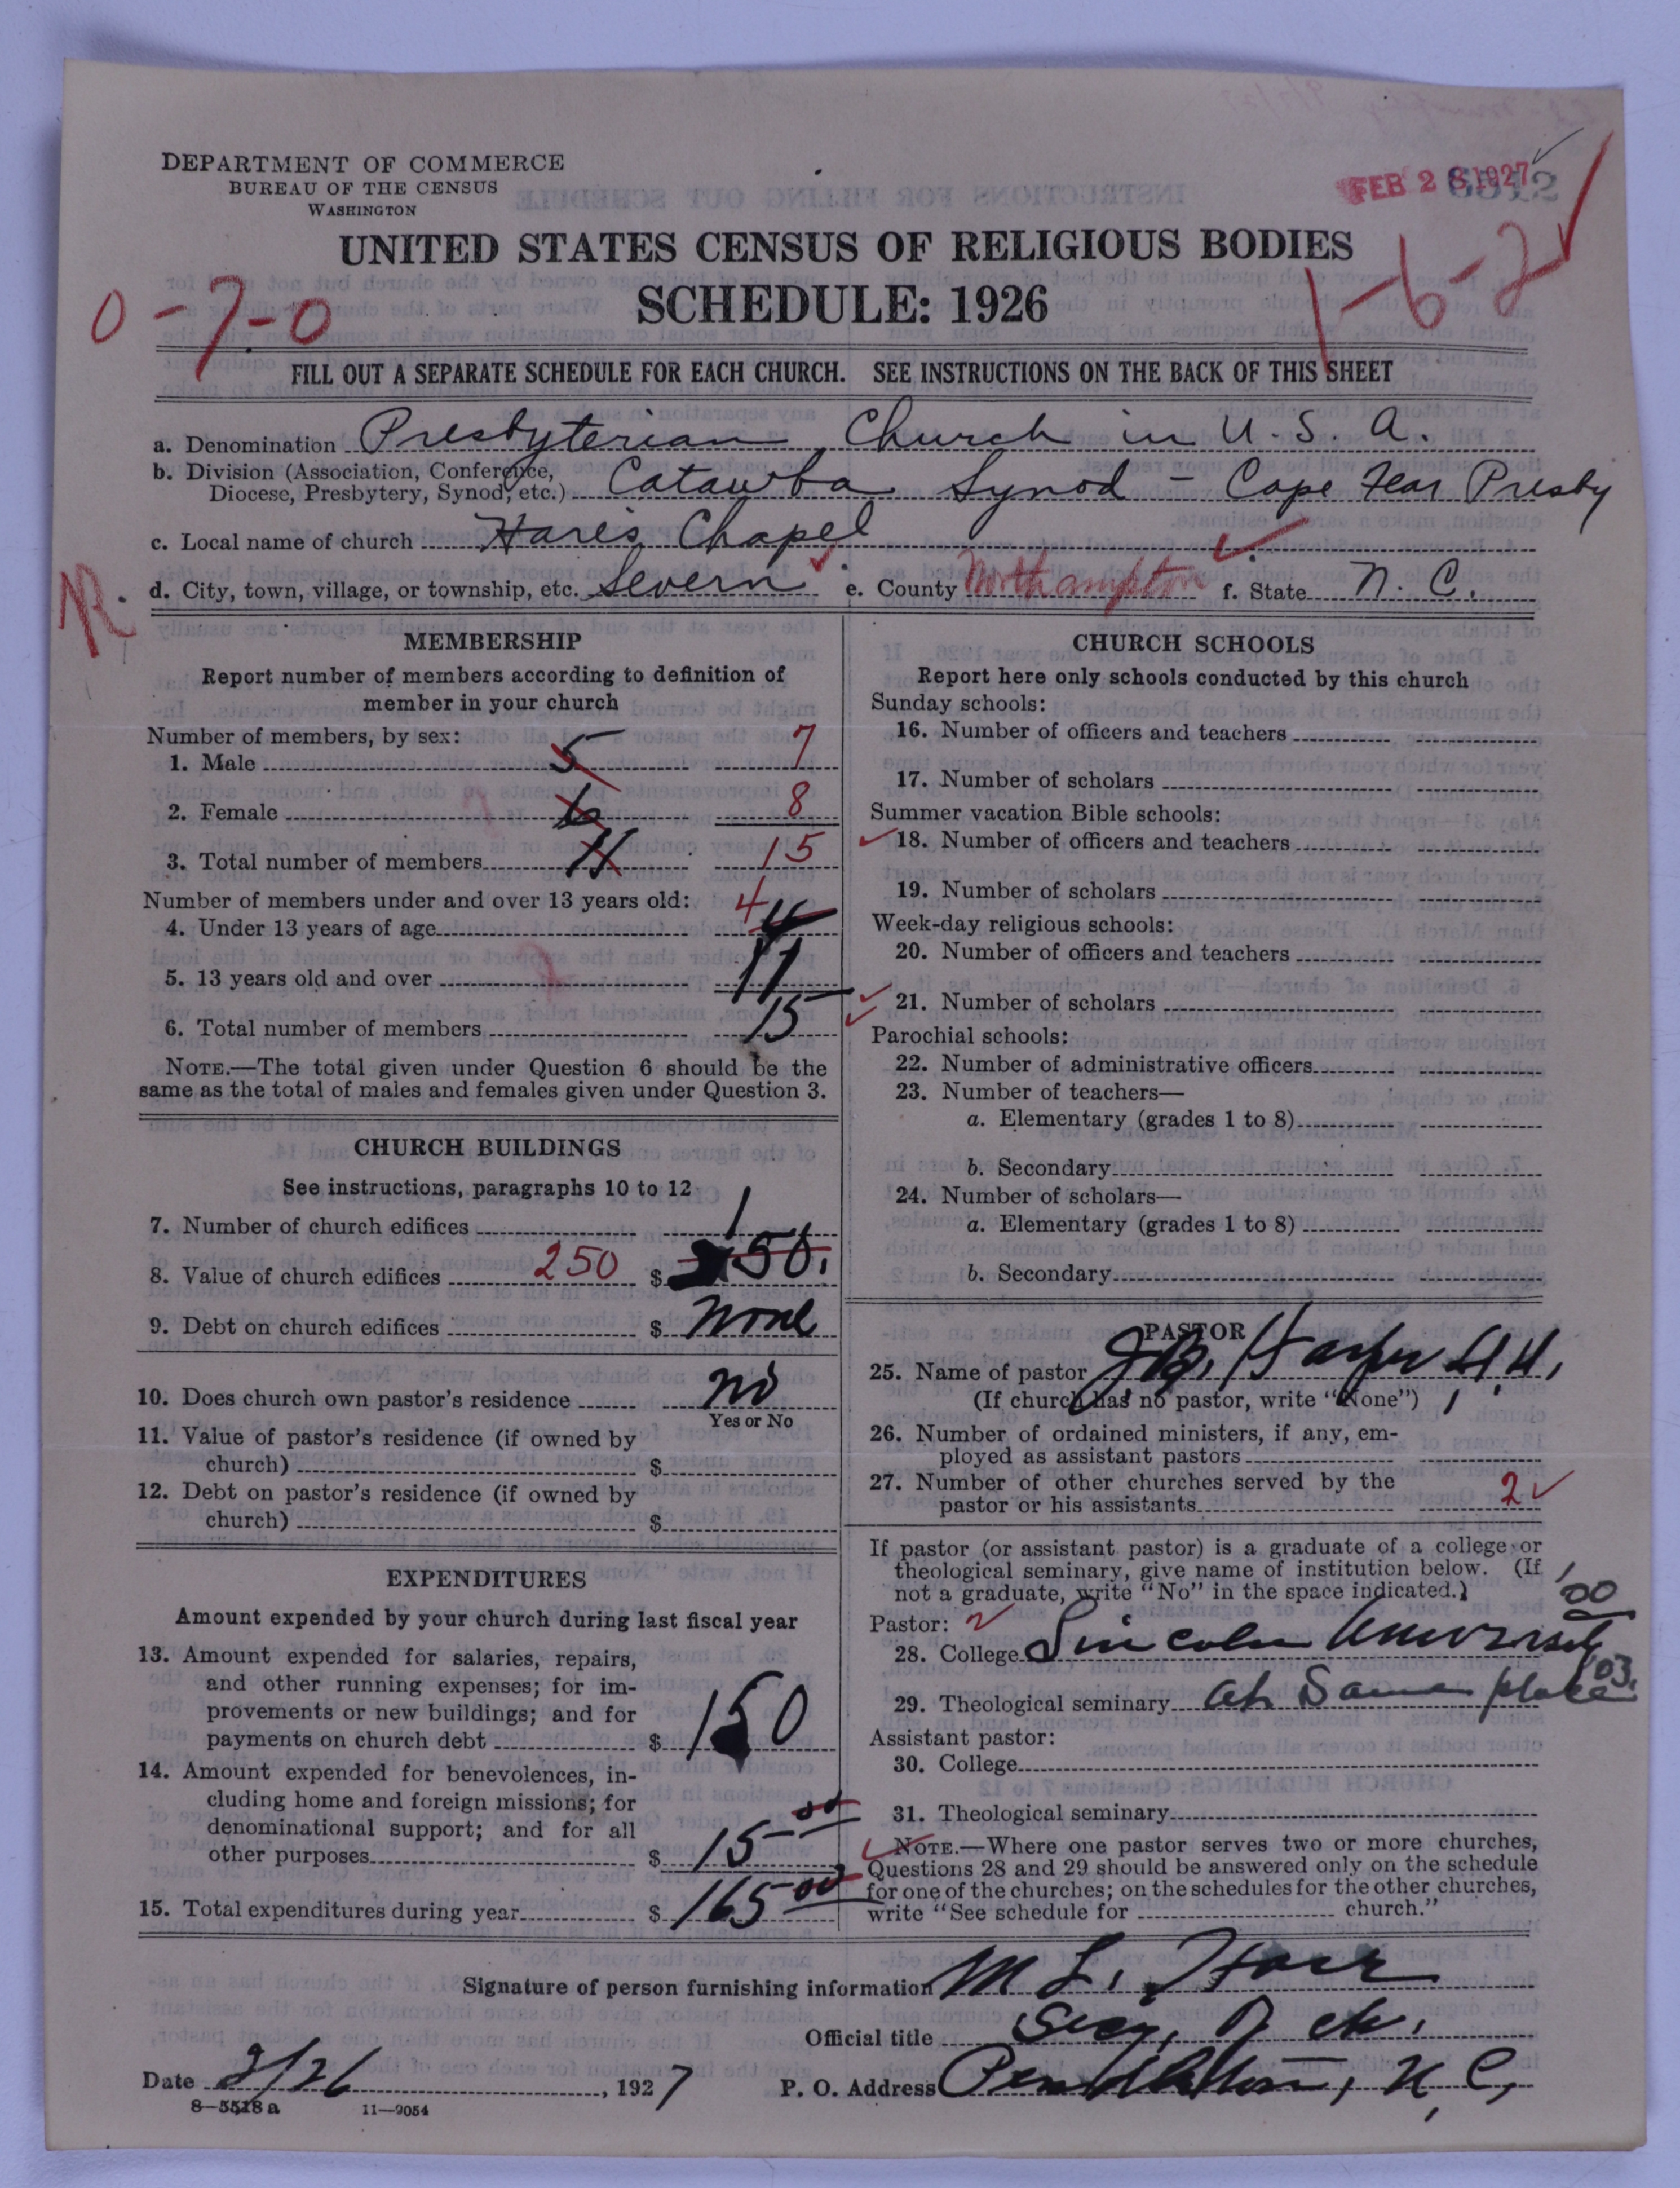 DEPARTMENT OF COMMERCE
BUREAU OF THE CENSUS
WASHINGTON
FEB 28 1927
UNITED STATES CENSUS OF RELIGIOUS BODIES
SCHEDULE: 1926
0-7-0
1-6-2
FILL OUT A SEPARATE SCHEDULE FOR EACH CHURCH. SEE INSTRUCTIONS ON THE BACK OF THIS SHEET
a. Denomination Presbyterian Church in U.S.A.
b. Division (Association, Conference,
Diocese, Presbytery, Synod, etc.) Catawba Synod - Cape Fear Presby
c. Local name of church Hares Chapel
R. d. City, town, village, or township, etc. Severn e. County Northampton f. State N. C.
MEMBERSHIP
Report number of members according to definition of
member in your church
Number of members, by sex:
1. Male 5 7
2. Female 6 8
3. Total number of members 11 15
Number of members under and over 13 years old:
4. Under 13 years of age 4 4
5. 13 years old and over 11
6. Total number of members 15
NOTE.—The total given under Question 6 should be the
same as the total of males and females given under Question 3.
CHURCH BUILDINGS
See instructions, paragraphs 10 to 12
7. Number of church edifices 1
8. Value of church edifices 250 $ 250.
9. Debt on church edifices $ none
10. Does church own pastor's residence no
Yes or No
11. Value of pastor's residence (if owned by
church) $
12. Debt on pastor's residence (if owned by
church) $
EXPENDITURES
Amount expended by your church during last fiscal year
13. Amount expended for salaries, repairs,
and other running expenses; for im-
provements or new buildings; and for
payments on church debt $ 150
14. Amount expended for benevolences, in-
cluding home and foreign missions; for
denominational support; and for all
other purposes $ 15 00
15. Total expenditures during year $ 165 00
CHURCH SCHOOLS
Report here only schools conducted by this church
Sunday schools:
16. Number of officers and teachers
17. Number of scholars
Summer vacation Bible schools:
18. Number of officers and teachers
19. Number of scholars
Week-day religious schools:
20. Number of officers and teachers
21. Number of scholars
Parochial schools:
22. Number of administrative officers
23. Number of teachers—
a. Elementary (grades 1 to 8)
b. Secondary
24. Number of scholars—
a. Elementary (grades 1 to 8)
b. Secondary
PASTOR
25. Name of pastor J.B. Harper
(If church has no pastor, write "None")
26. Number of ordained ministers, if any, em-
ployed as assistant pastors
27. Number of other churches served by the
pastor or his assistants 2
If pastor (or assistant pastor) is a graduate of a college or
theological seminary, give name of institution below. (If
not a graduate, write "No" in the space indicated.)
Pastor: 2
28. College Lincoln University '00
29. Theological seminary at Same place '03
Assistant pastor:
30. College
31. Theological seminary
NOTE.—Where one pastor serves two or more churches,
Questions 28 and 29 should be answered only on the schedule
for one of the churches; on the schedules for the other churches,
write "See schedule for church."
Signature of person furnishing information M L.
Official title Secy. of ch.
Date 2/26, 1927 P. O. Address Pendleton, N. C.
8-5518a 11-9054